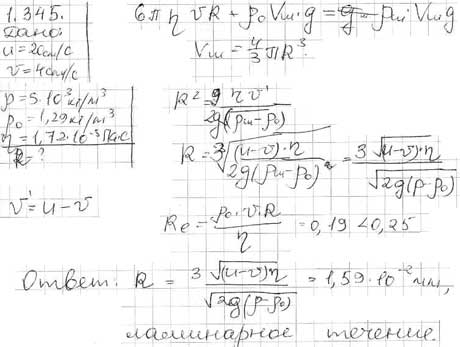 1.345.
Дано:
u = 20см/с
v = 4см/с
ρ = 5·10³кг/м³
ρ₀ = 1,29кг/м³
η = 1,72·10⁻⁵Па·с
R = ?
v' = u - v
6πηvR + ρ₀Vш·g = ρш·Vшg
Vш = 4/3 πR³
R² = 9ηv' / 2g(ρш-ρ₀)
R = 3√((u-v)·η / 2g(ρш-ρ₀)) = 3√(u-v)·η / √2g(ρ-ρ₀)
Re = ρ₀·v·R / η = 0,19 < 0,25
Ответ: R = 3√(u-v)η / √2g(ρ-ρ₀) = 1,59·10⁻² мм,
ламинарное течение.